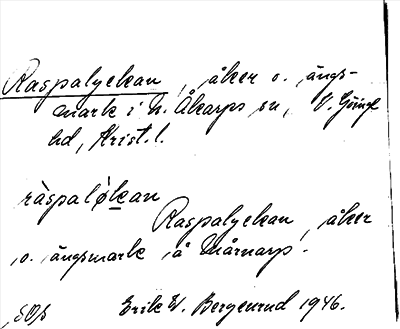 Raspalyckan, åker o. ängs-
mark i N. Åkarps sn, V. Göinge
hd, Krist. l.
ràspaløkan
Raspalyckan, åker
o. ängsmark å Mårnarp.
Erik W. Bergenrud 1946.